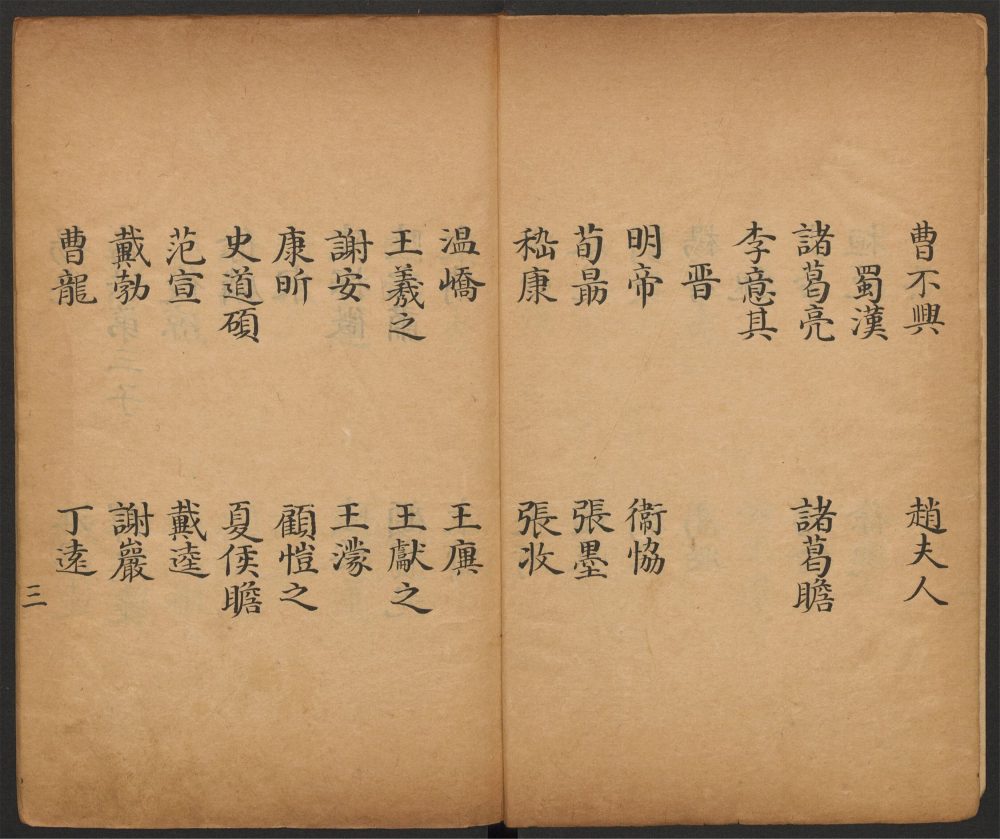 曹不興 趙夫人
蜀漢
諸葛亮 諸葛瞻
李意其
晋
明帝 衞協
荀勗 張墨
嵇康 張收
温嶠 王廙
王羲之 王獻之
謝安 王濛
康昕 顧愷之
史道碩 夏侯瞻
范宣 戴逵
戴勃 謝巖
曹龍 丁逺
三